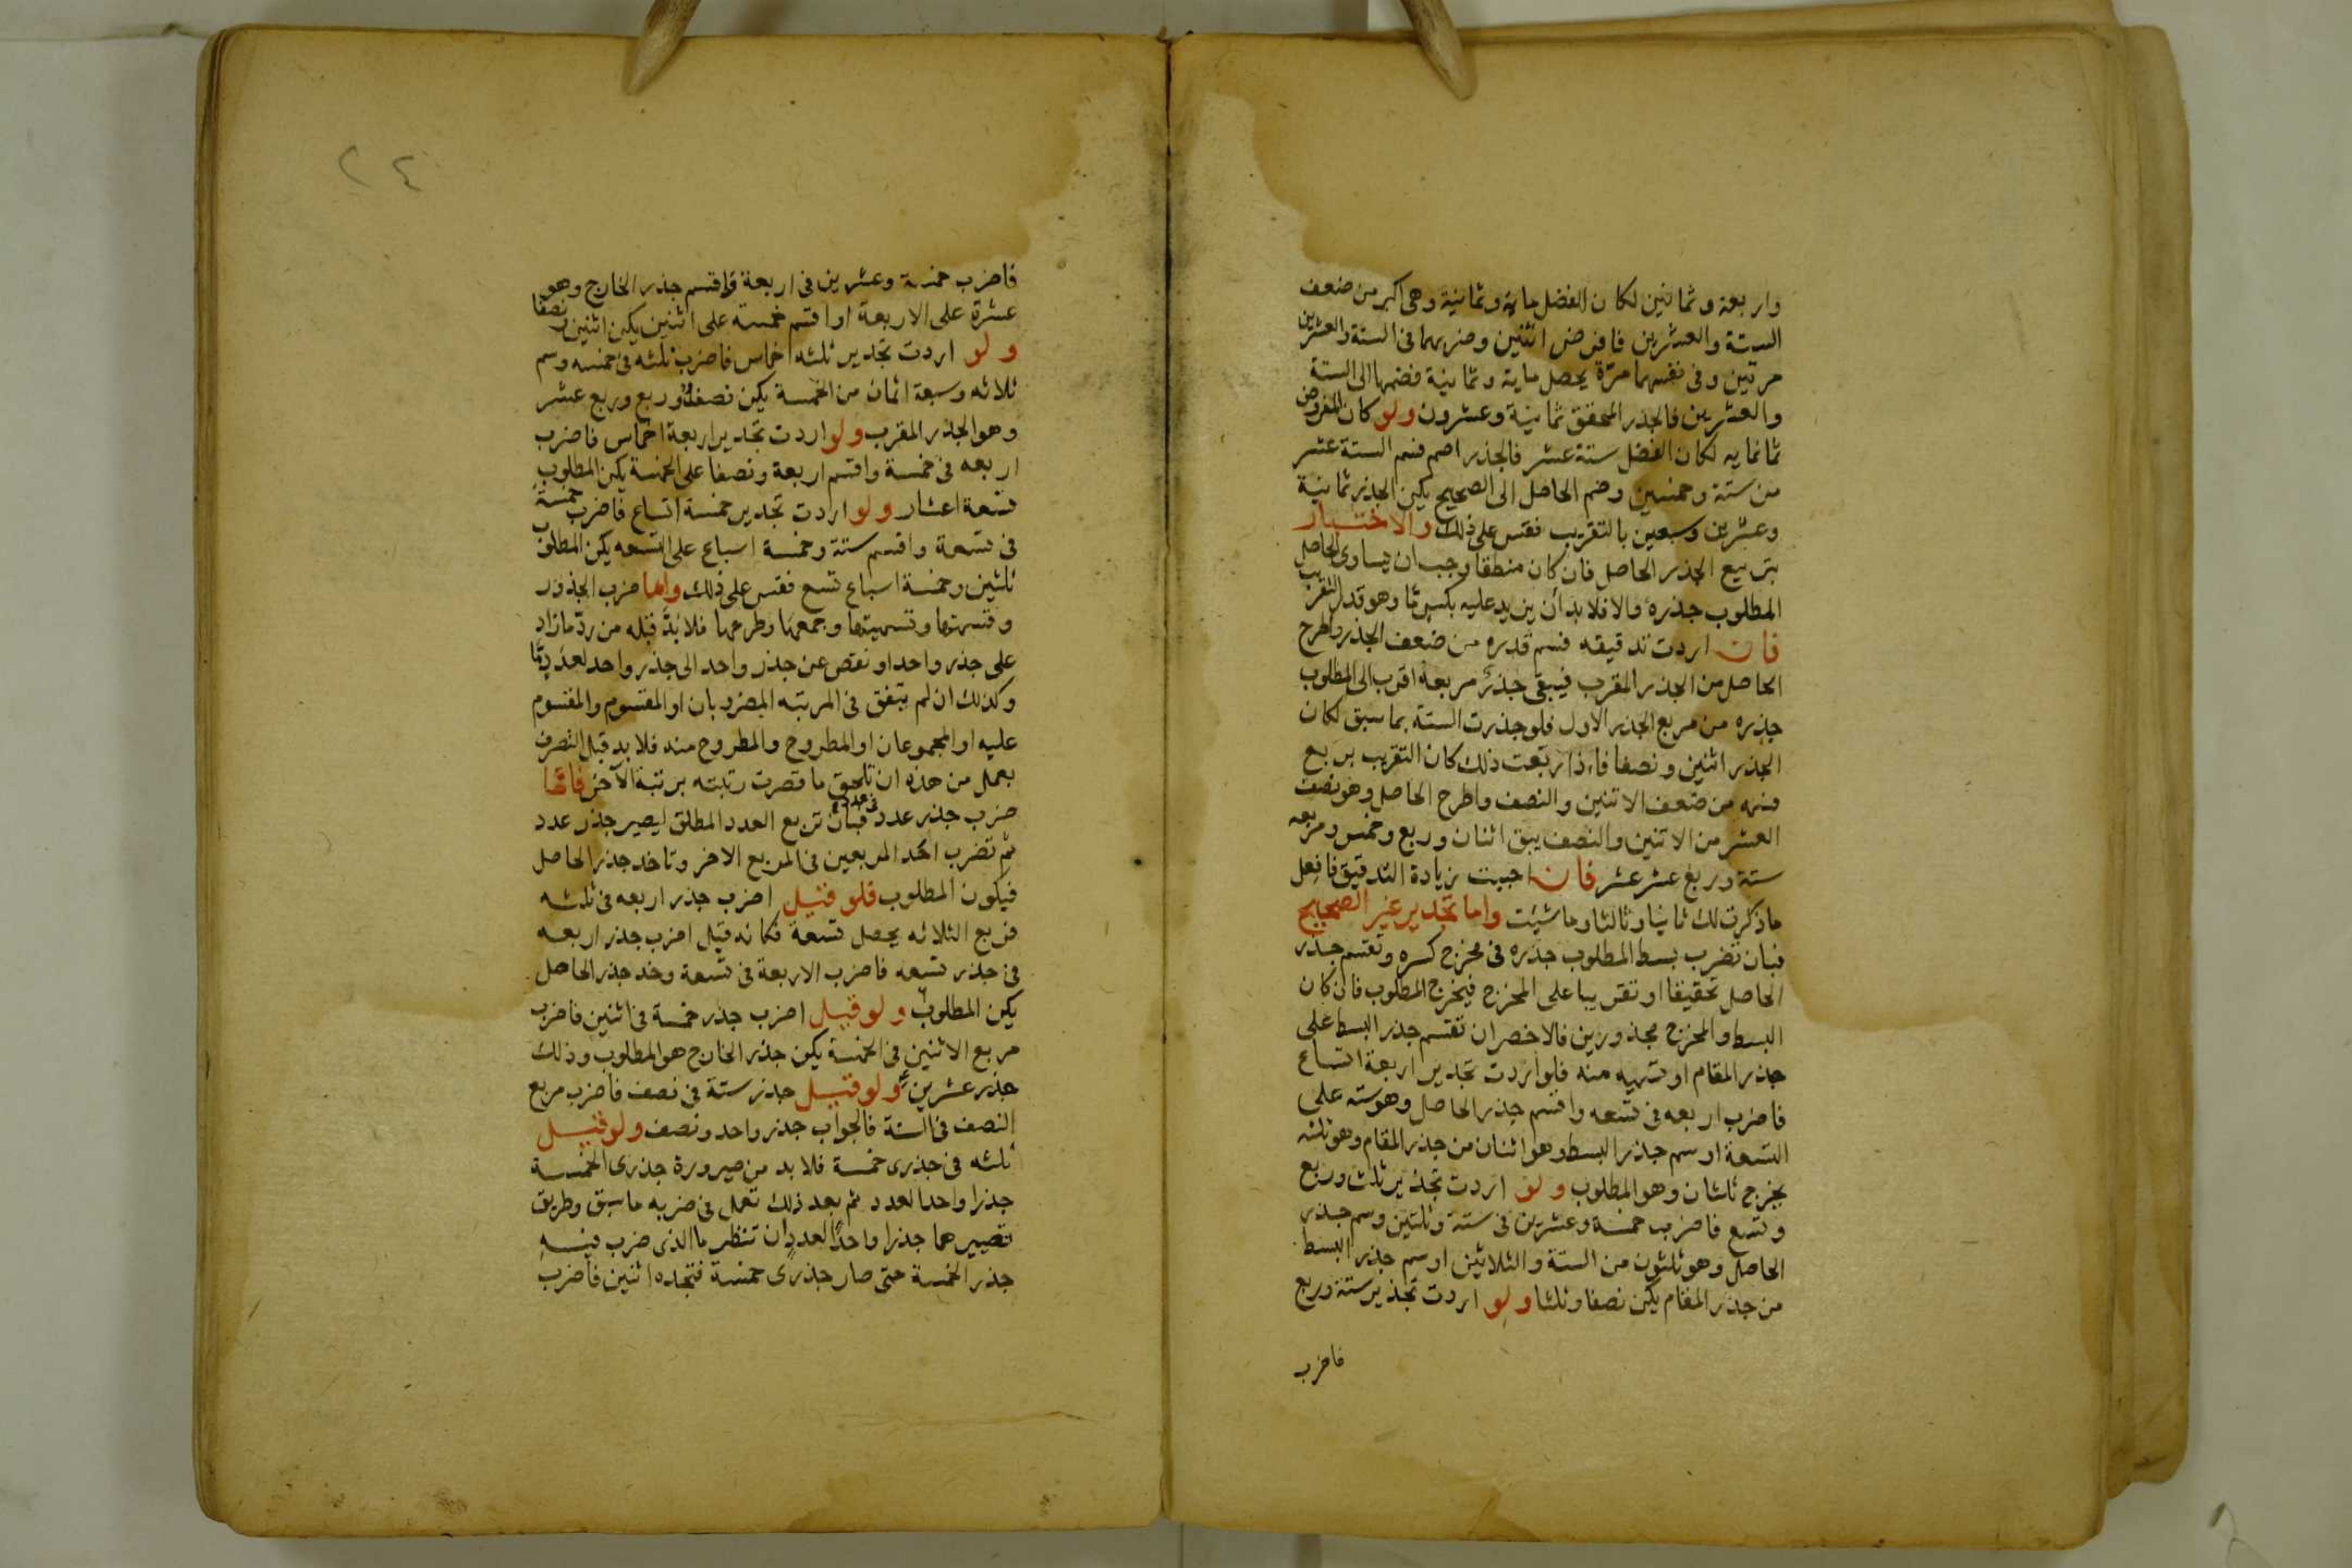 واربعة وثمانين لكان الفضل ماية وثمانية وهى اكبر من ضعف
الستة والعشرين فافرض اثنين وضربهما فى الستة والعشرين
مرتين وفى نفسهما مرّة يحصل ماية وثمانية فضمها الى الستة
والعشرين فالجذر المحقق ثمانية وعشرون ولو كان المفروض
ثمانمايه لكان الفضل ستة عشر فالجذر اصم فسم الستة عشر
من ستة وخمسين وضم الحاصل الى الصحيح يكن الجذر ثمانية
وعشرين وسبعين بالتقريب فقس على ذلك والاختبار
بتربيع الجذر الحاصل فان كان منطقا وجب ان يساوى الحاصل
المطلوب جذره والا فلا بد أن يزيد عليه بكسر ما وهو قدر التقريب
فان اردت تدقيقه فسم قدره من ضعف الجذر واطرح
الحاصل من الجذر المقرب فيبقى جذر مربعه اقرب الى المطلوب
جذره من مربع الجذر الاول فلو جذرت الستة بما سبق لكان
الجذر اثنين ونصفا فاذا ربعت ذلك كان التقريب بربع
فسمه من ضعف الاثنين والنصف واطرح الحاصل وهو نصف
العشر من الاثنين والنصف يبق اثنان وربع وخمس ومربعه
ستة وربع عشر عشر فان احببت زيادة التدقيق فافعل
ماذكرت لك ثانيا وثالثا وما شيئت واما تجذير غير الصحيح
فبان تضرب بسط المطلوب جذره فى مخرج كسره وتقسم جذر
الحاصل تحقيقا او تقريبا على المخرج فيخرج المطلوب فان كان
البسط والمخرج مجذورين فالاخصر ان تقسم جذر البسط على
جذر المقام او تسميه منه فلو اردت تجذير اربعة اتساع
فاضرب اربعه فى تسعه واقسم جذر الحاصل وهو سته على
التسعة او سم جذر البسط وهو اثنان من جذر المقام وهو ثلثه
يخرج ثلثان وهو المطلوب ولو اردت تجذير ثلث وربع
وتسع فاضرب خمسة وعشرين فى ستة وثلثين وسم جذر
الحاصل وهو ثلثون من الستة والثلاثين او سم جذر البسط
من جذر المقام يكن نصفا وثلثا ولو اردت تجذير ستة وربع
فاضرب
٢٤
فاضرب خمسة وعشرين فى اربعة واقسم جذر الخارج وهو
عشرة على الاربعة او اقسم خمسة على اثنين يكن اثنين ونصفا
ولو اردت تجذير ثلثه اخماس فاضرب ثلثه فى خمسه وسم
ثلاثه وسبعة اثمان من الخمسة يكن نصفا وربع وربع عشر
وهو الجذر المقرب ولو اردت تجذير اربعة اخماس فاضرب
اربعه فى خمسة واقسم اربعة ونصفا على الخمسة يكن المطلوب
تسعة اعشار ولو اردت تجذير خمسة اتساع فاضرب خمسة
فى تسعة واقسم ستة وخمسة اسباع على التسعه يكن المطلوب
ثلثين وخمسة اسباع تسع فقس على ذلك واما ضرب الجذور
وقسمتها وتسميتها وجمعها وطرحها فلا بدّ قبله من ردّ ما زاد
على جذر واحد او نقص عن جذر واحد الى جذر واحد لعدد ما
وكذلك ان لم يتفق فى المرتبه المضروبان او المقسوم والمقسوم
عليه او المجموعان او المطروح والمطروح منه فلا بد قبل التصرف
بعمل من هذه ان تلحق ما قصرت رتبته برتبة الآخر فاما
ضرب جذر عدد فى عدد فبان تربع العدد المطلق ليصير جذر عدد
ثم تضرب احد المربعين فى المربع الاخر وتاخد جذر الحاصل
فيكون المطلوب فلو قيل اضرب جذر اربعه فى ثلثه
فربع الثلاثه يحصل تسعة فكانه قيل اضرب جذر اربعه
فى جذر تسعه فاضرب الاربعة فى تسعة وخد جذر الحاصل
يكن المطلوب ولو قيل اضرب جذر خمسة فى اثنين فاضرب
مربع الاثنين فى الخمسة يكون جذر الخارج هو المطلوب وذلك
جذر عشرين ولو قيل جذر ستة فى نصف فاضرب مربع
النصف فى الستة فالجواب جذر واحد ونصف ولو قيل
ثلثه فى جذرى خمسة فلا بد من صيرورة جذرى الخمسة
جذرا واحدا لعدد ثم بعد ذلك تعمل فى ضربه ما سبق وطريق
تصييرهما جذرا واحدًا لعددٍ ان تنظر ما الذى ضرب فيه
جذر الخمسة حتى صار جذرى خمسة فتجده اثنين فاضرب